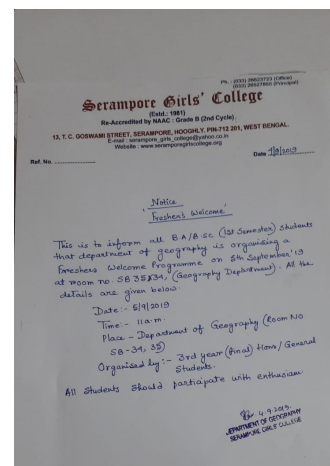 Ph. : (033) 26623723 (Office)
(033) 26527800 (Principal)
Serampore Girls' College
(Estd.: 1981)
Re-Accredited by NAAC : Grade B (2nd Cycle).
13, T. C. GOSWAMI STREET, SERAMPORE, HOOGHLY, PIN-712 201, WEST BENGAL.
E-mail : serampore_girls_college@yahoo.co.in
Website : www.seramporegirlscollege.org
Ref. No. .................... Date
Notice
Freshers Welcome
This is to inform all B.A/B.SC (1st Semester) students
that department of geography is organising a
Freshers Welcome Programme on 5th September'19
at room no. SB 35&34, (Geography Department). All the
details are given below
Date:- 5/9/2019
Time:- 11 a.m.
Place - Department of Geography (Room No
SB-34, 35)
Organised by:- 3rd year (final) Hons/General
Students.
All Students should participate with enthusiasm
4.9.2019.
DEPARTMENT OF GEOGRAPHY
SERAMPORE GIRLS' COLLEGE